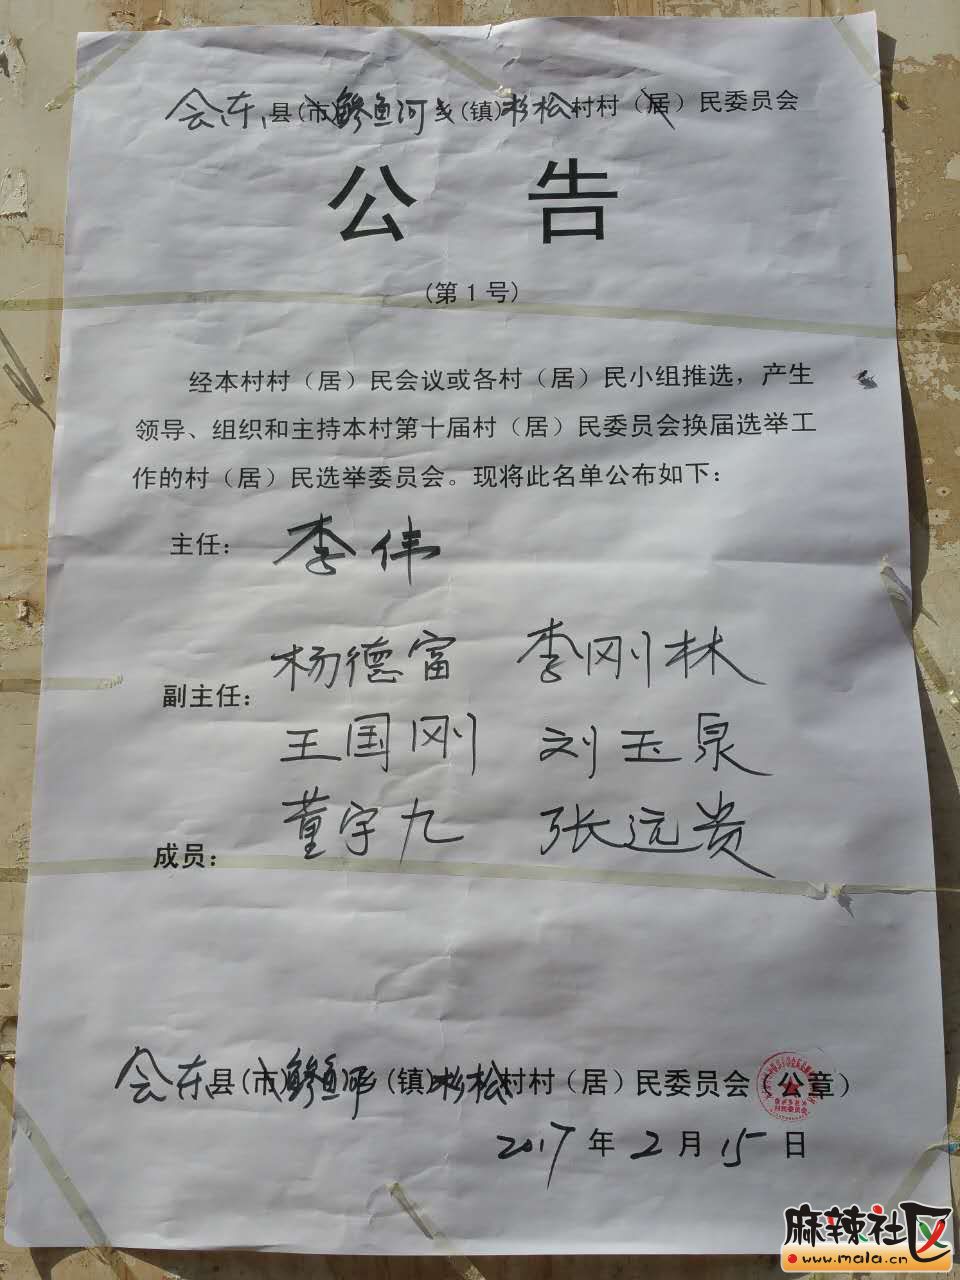 会东县(市)鲹鱼河乡(镇)杉松村村（居）民委员会
公告
(第1号)
经本村村（居）民会议或各村（居）民小组推选，产生
领导、组织和主持本村第十届村（居）民委员会换届选举工
作的村（居）民选举委员会。现将此名单公布如下：
主任：李伟
杨德富 李刚林
副主任：
王国刚 刘玉泉
董宇九 张远贵
成员：
会东县(市)鲹鱼河乡(镇)杉松村村（居）民委员会（公章）
村民委员会
2017年2月15日
麻辣社区
www.mala.cn